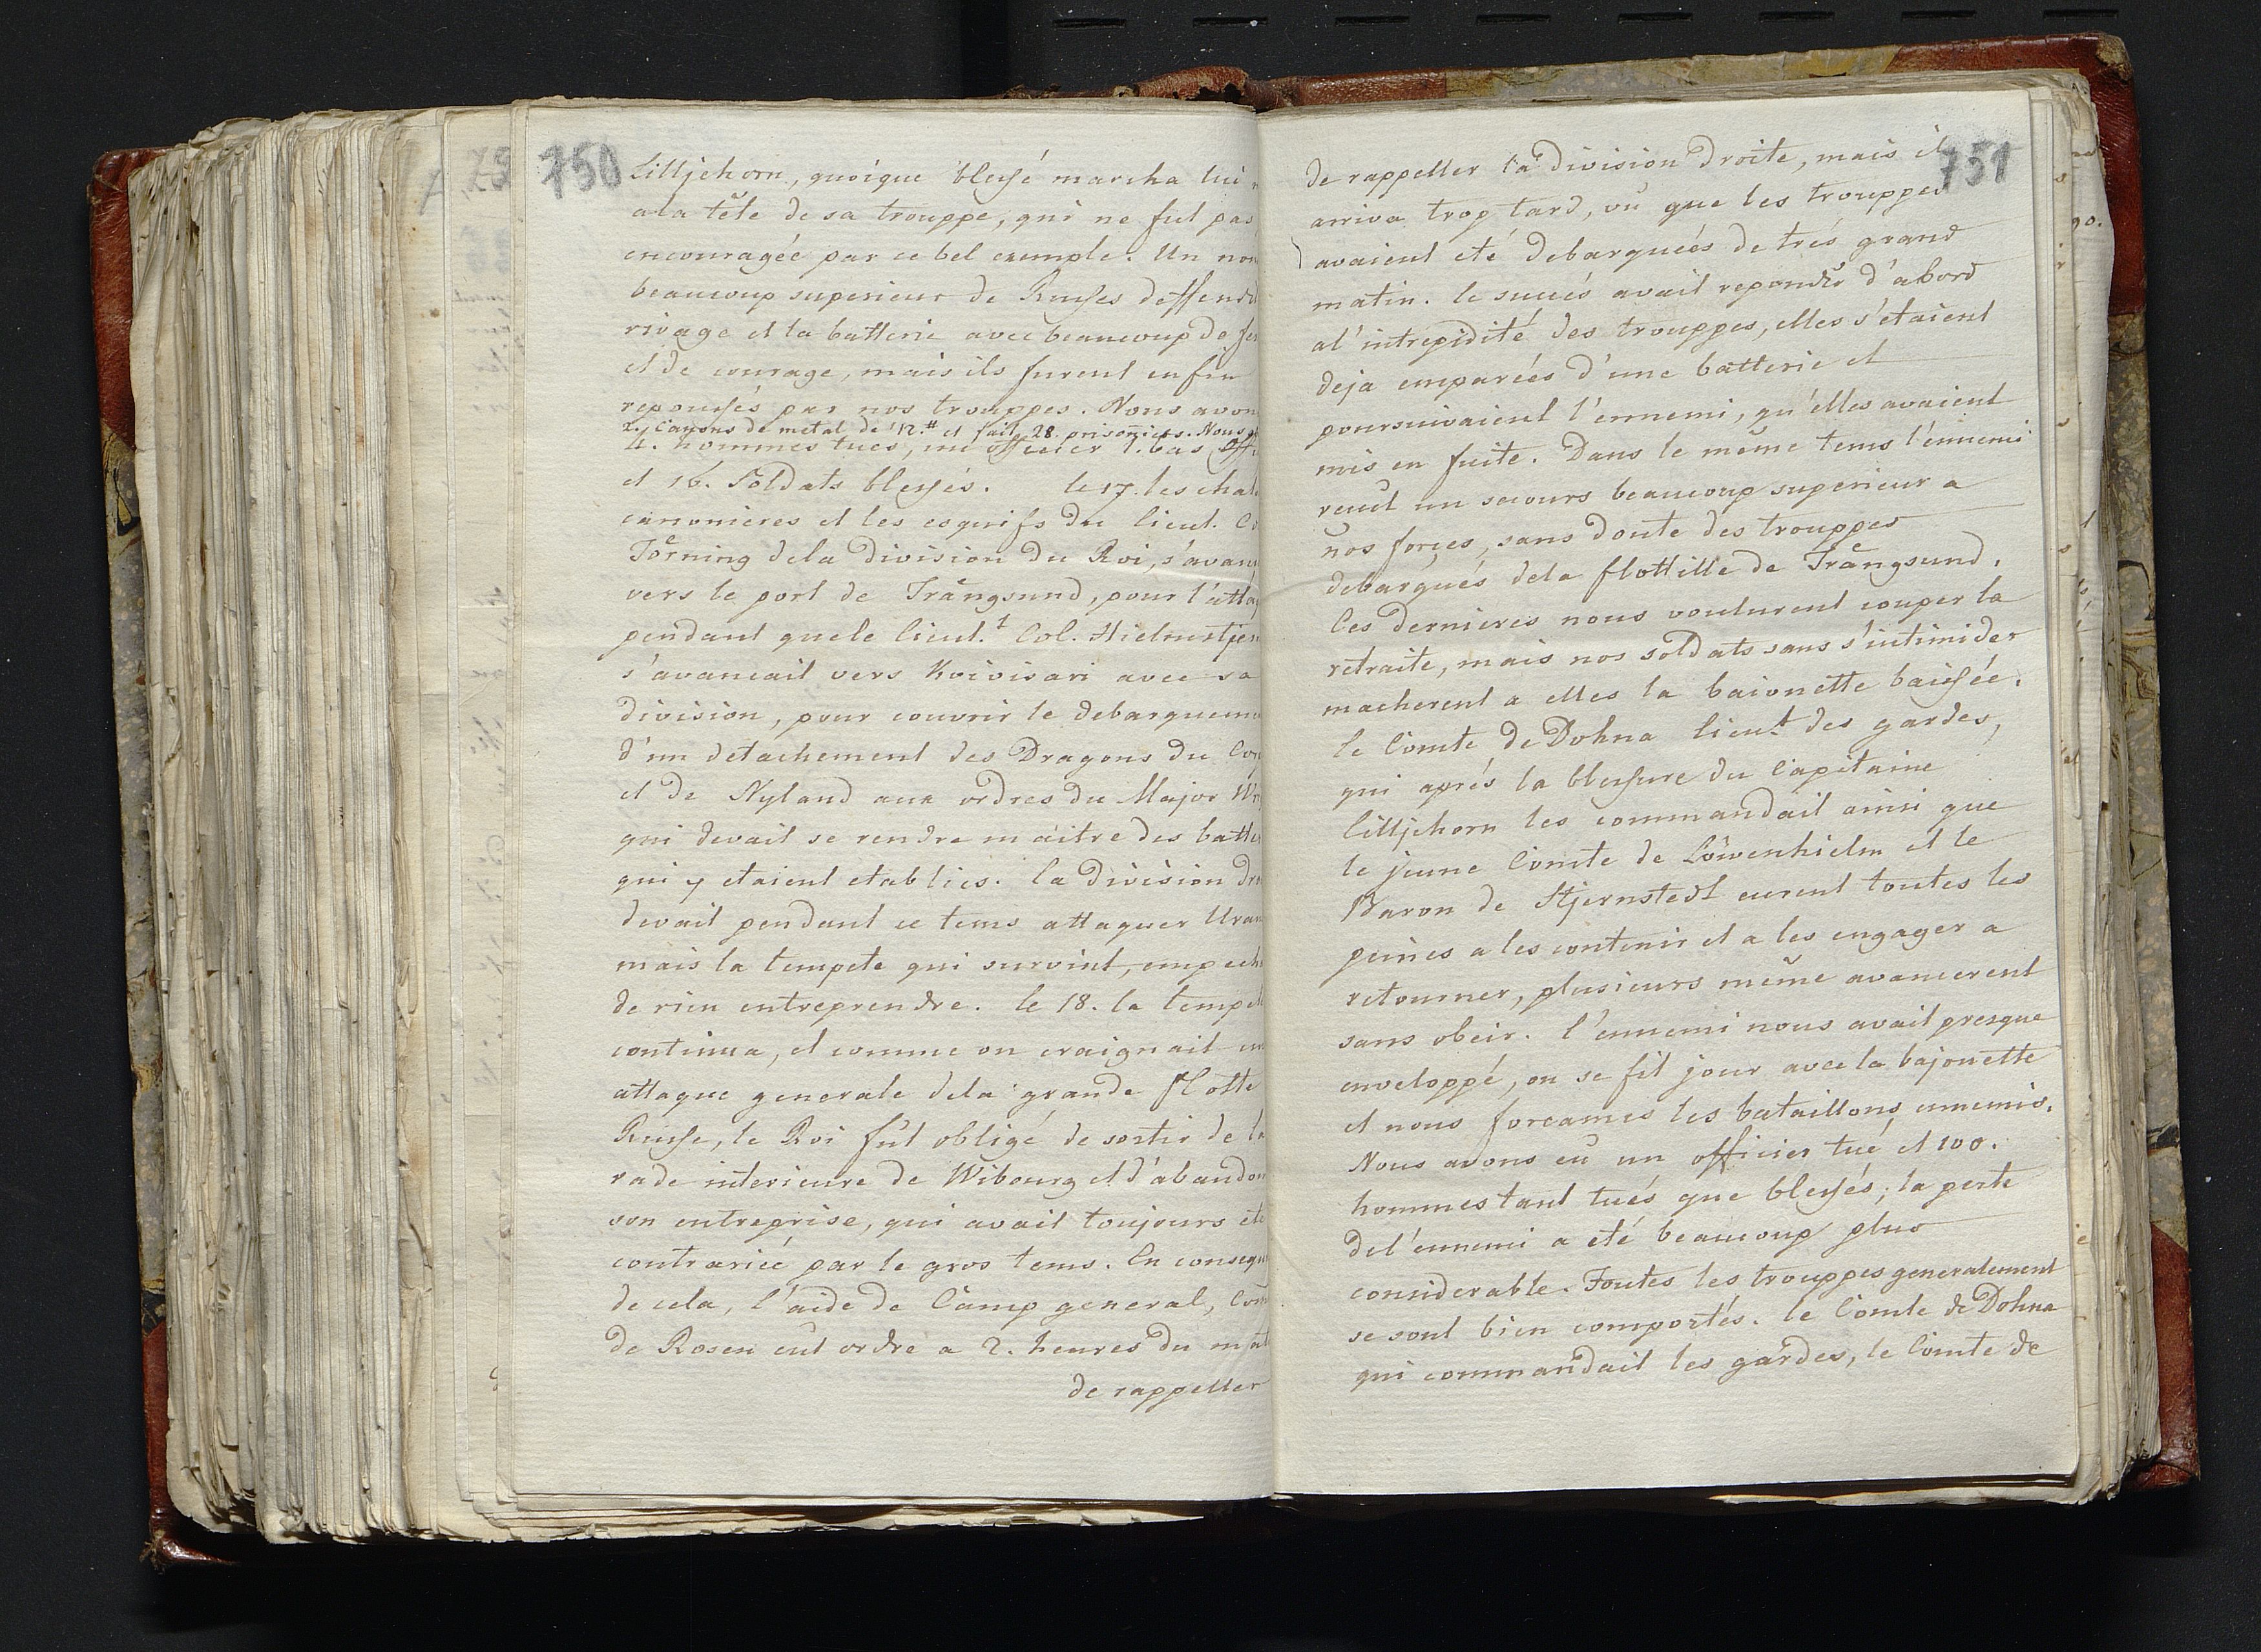 750
Lilljehorn, quoique blessé marcha lui
a la tête de sa trouppe, qui ne fut pas
encouragée par ce bel exemple. Un
beaucoup superieur de Russes deffend
rivage et la batterie avec beaucoup de
et de courage, mais ils furent enfin
repoussés par nos trouppes. Nous avon
2. Canons de metal de 12.# et fait 28. prisoñiers. Nous
4. hommes tués, un officier 1. bas
et 16. Soldats blessés. le 17. les
canonieres et les esquifs du lieut.
Törning dela Division du Roi, s'avan
vers le port de Trångsund, pour l'atta
pendant quele lieut.t Col. Hielmstjer
s'avancait vers Koivisari avec sa
division, pour couvrir le debarqueme
d'un detachement des Dragons du
et de Nyland aux ordres du Major
qui devait se rendre maitre des batte
qui y etaient etablies. la division
devait pendant ce tems attaquer Uran
mais la tempete qui survint, empech
de rien entreprendre. le 18. la tempet
continua, et comme on craignait
attaque generale dela grande flotte
Russe, le Roi fut obligé de sortir de la
rade interieure de Wibourg et d'abandon
son entreprise, qui avait toujours eté
contrariée par le gros tems. En consequ
de cela, l'aide de Camp general,
de Rosen eut ordre a 2. heures du mat
de rappeller
751
de rappeller la division droite, mais il
arriva trop tard, vû que les trouppes
avaient eté debarqueés de trés grand
matin. le succés avait repondû d'abord
al'intrepidité des trouppes, elles s'etaient
deja emparées d'une batterie et
poursuivaient l'ennemi, qu'elles avaient
mis en fuite. Dans le même tems l'ennemi
recut un secours beaucoup superieur a
nos forces, sans doute des trouppes
debarqués dela flottille de Trångsund.
Ces dernieres nous voulurent couper la
retraite, mais nos soldats sans s'intimider
macherent a elles la baionette baissée.
le Comte de Dohna lieut des gardes,
qui aprés la blessure du Capitaine
Lilljehorn les commandait ainsi que
le jeune Comte de Löwenhielm et le
Baron de Stjernstedt eurent toutes les
peines a les contenir et a les engager a
retourner, plusieurs même avancerent
sans obeir. l'ennemi nous avait presque
enveloppé, on se fit jour avec la bajonette
et nous forcames les bataillons ennemis.
Nous avons eu un officier tué et 100.
hommes tant tués que blessés; la perte
del'ennemi a eté beaucoup plus
considerable. Toutes les trouppes generalement
se sont bien comportés. le Comte de Dohna
qui commandait les gardes, le Comte de